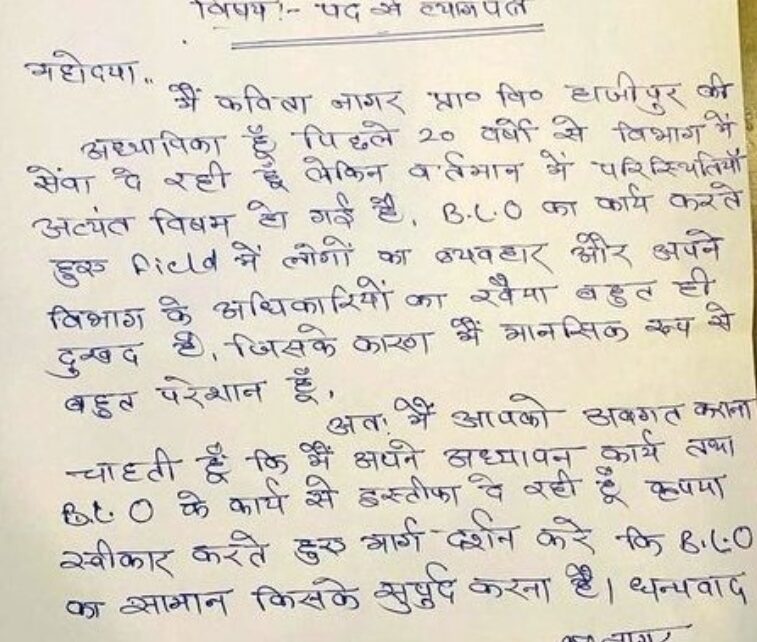 विषय :- पद से त्यागपत्र
महोदया,,
मैं कविता नागर प्रा० वि० हाजीपुर की
अध्यापिका हूँ पिछले 20 वर्षों से विभाग में
सेवा दे रही हूँ लेकिन वर्तमान में परिस्थितियाँ
अत्यंत विषम हो गई है, B.L.O का कार्य करते
हुए Field में लोगों का व्यवहार और अपने
विभाग के अधिकारियों का रवैया बहुत ही
दुखद है, जिसके कारण मैं मानसिक रूप से
बहुत परेशान हूँ,
अतः मैं आपको अवगत कराना
चाहती हूँ कि मैं अपने अध्यापन कार्य तथा
B.L.O के कार्य से इस्तीफा दे रही हूँ कृपया
स्वीकार करते हुए मार्ग-दर्शन करे कि B.L.O
का सामान किसके सुपुर्द करना है। धन्यवाद
नागर